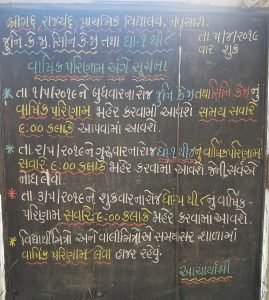 શ્રીમદ્દ રાજચંદ્ર પ્રાથમિક વિદ્યાલય, નવસારી.
જુનિ.કે.જી, સિનિ.કે.જી તથા ધો-૧થી૮
વાર શુક્ર
વાર્ષિક પરિણામ અંગે સૂચના
* તા ૧/૫/૨૦૧૯ને બુધવારનારોજ જુનિ.કે.જી તથા સિનિ.કે.જી નું
વાર્ષિક પરિણામ જાહેર કરવામાં આવશે સમય સવારે
૯:૦૦ કલાકે આપવામાં આવશે.
* તા ૨/૫/૨૦૧૯ને ગુરુવારનારોજ નું વાર્ષિકપરિણામ
સવારે ૯:૦૦ કલાકે જાહેર કરવામાં આવશે જેની સર્વએ
નોંધ લેવી.
* તા ૩/૫/૨૦૧૯ને શુક્રવારનારોજ ધો-૫ થી ૮ નું વાર્ષિક -
પરિણામ સવારે ૯:૦૦ કલાકે જાહેર કરવામાં આવશે.
* વિદ્યાર્થીમિત્રો અને વાલીમિત્રોએ સમયસર શાળામાં
વાર્ષિક પરિણામ લેવા હાજર રહેવું.
આચાર્યાશ્રી